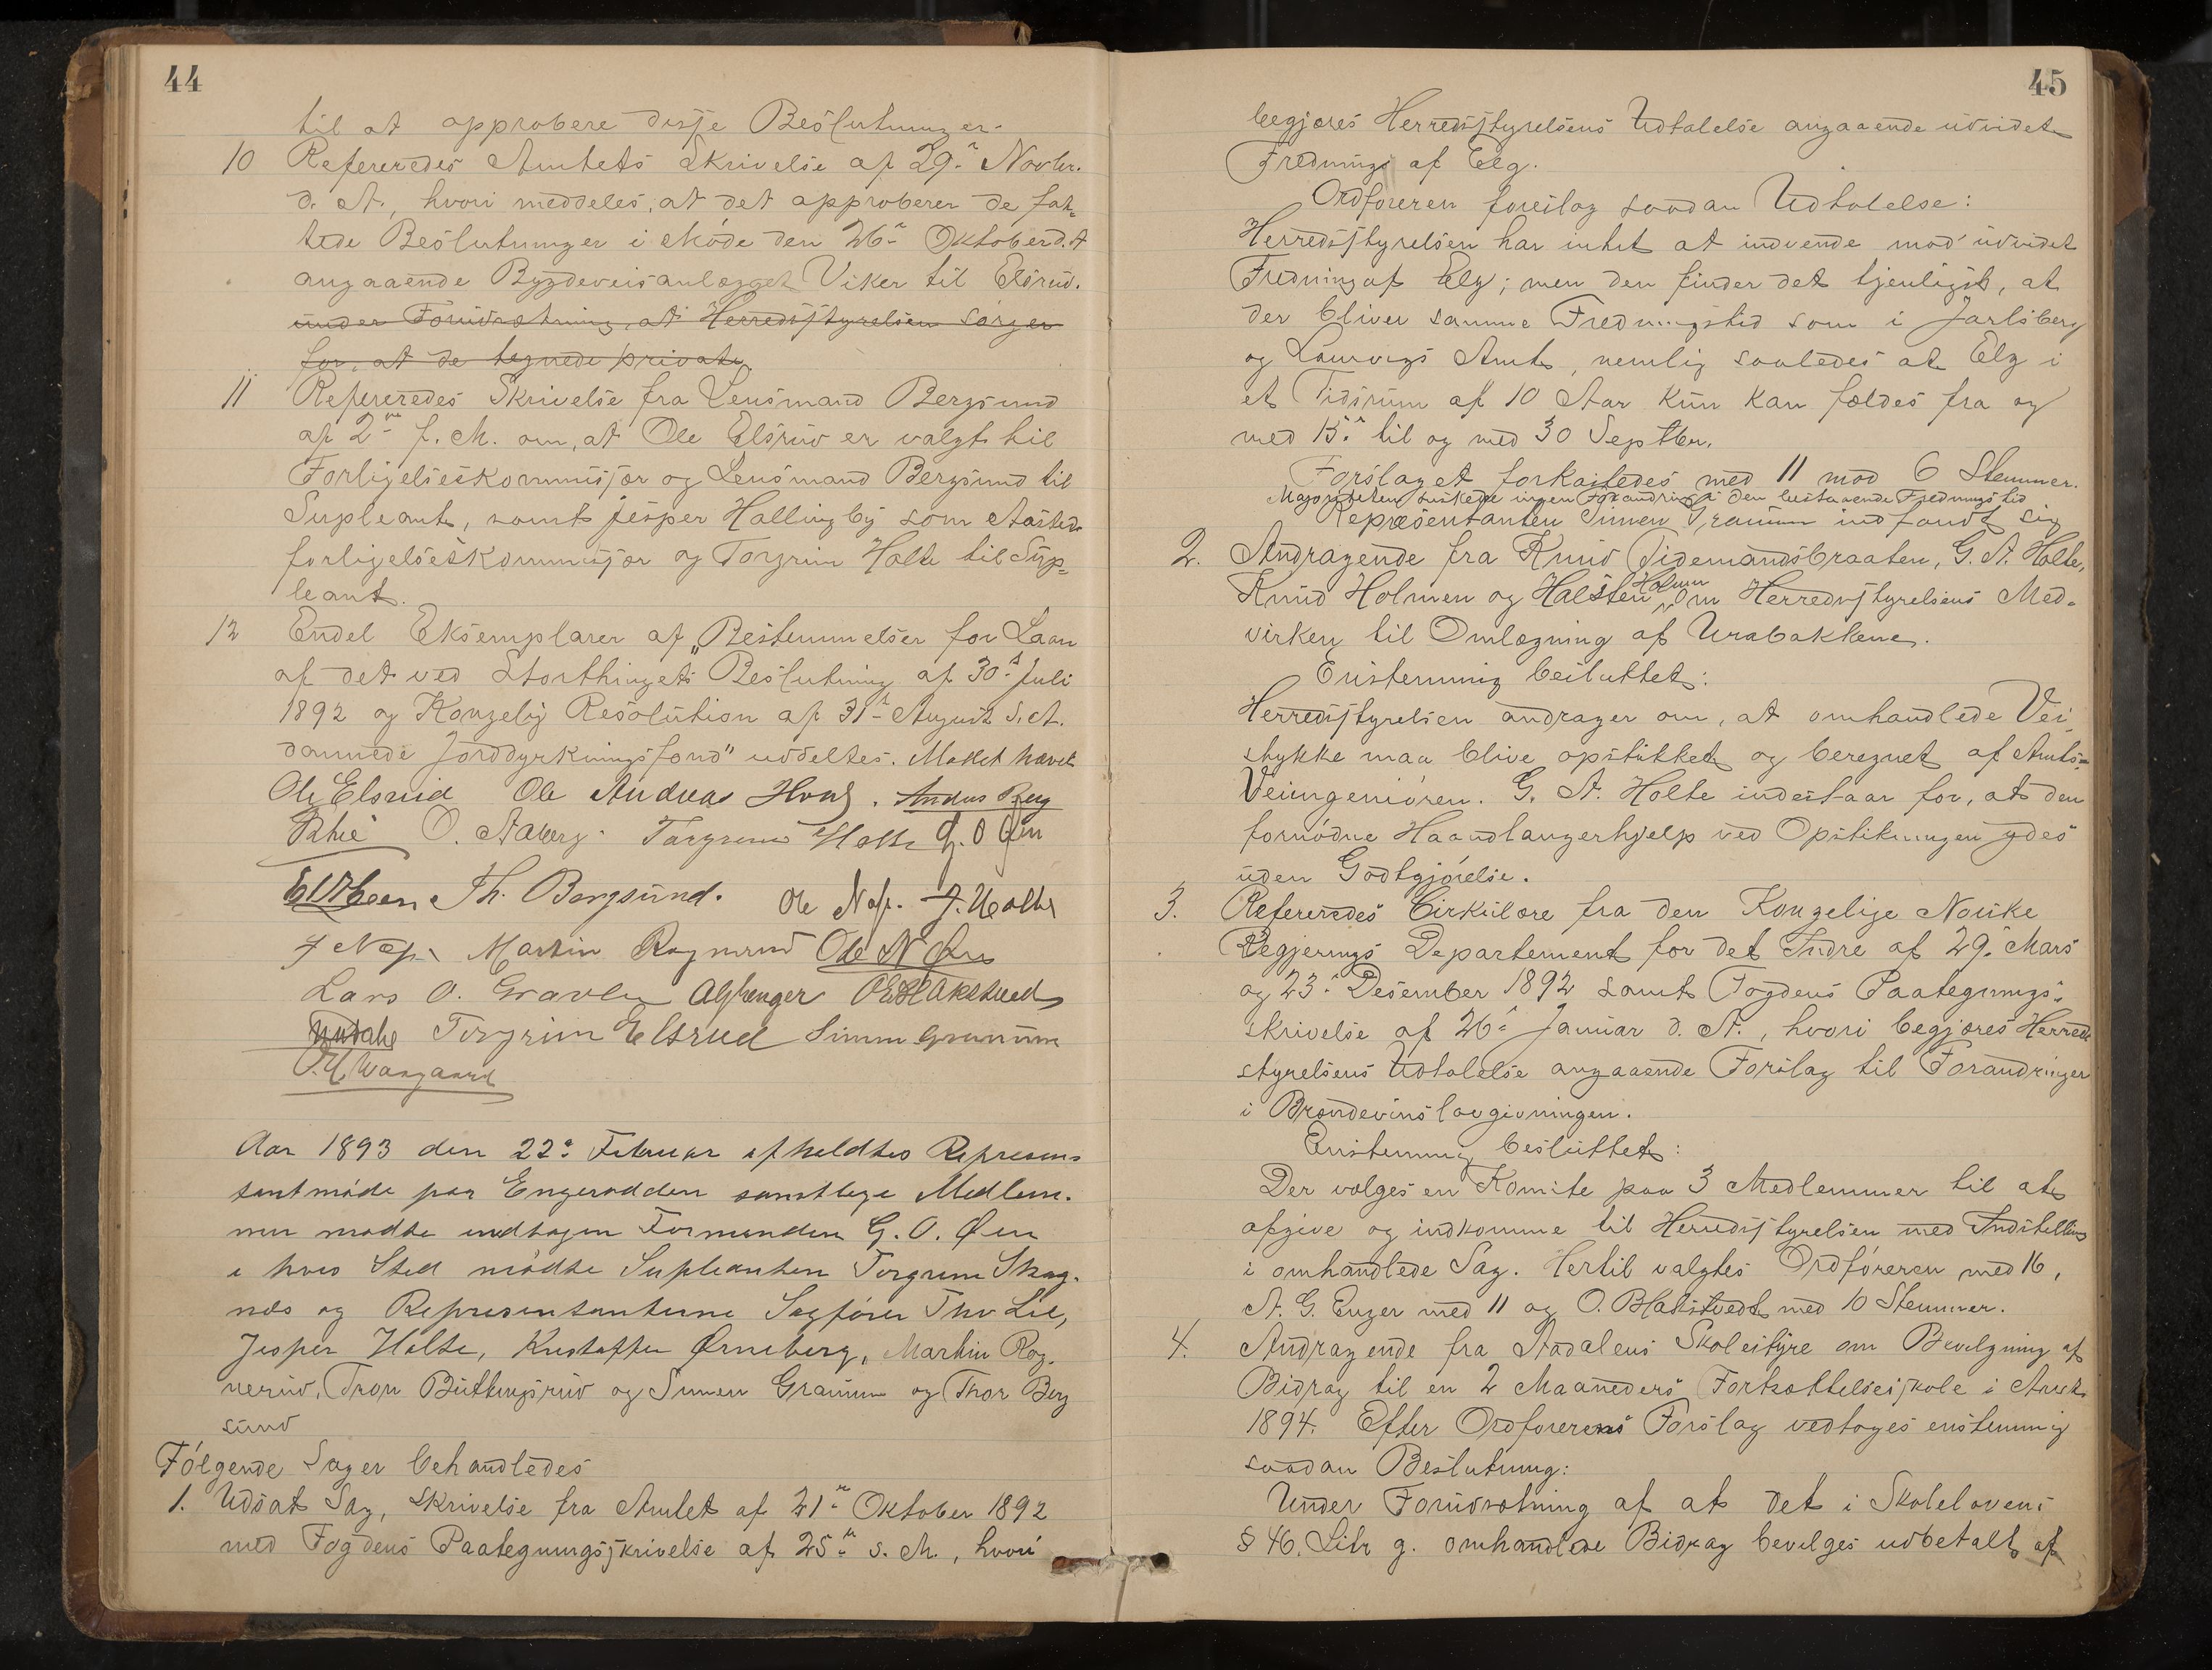 44
til at approbere disse Beslutninger.
10 Refereredes Amtets Skrivelse af 29de Novbr.
d. A., hvori meddeles, at det approberer de fat-
tede Beslutninger i Møde den 26de Oktober d. A
angaaende Bygdeveisanlægget Viker til Elsrud.
under Forudsætning, at Herredsstyrelsen sørger
for, at de tegnede private
11 Refereredes Skrivelse fra Lensmand Bergsund
af 2den f. M. om, at Ole Elsrud er valgt til
Forligelseskommissær og Lensmand Bergsund til
Supleant, samt Jesper Hallingby som Aasteds
forligelseskommissær og Torgrim Holte til Sup=
leant.
12 Endel Eksemplarer af „Bestemmelser for Laan
af det ved Storthingets Beslutning af 30te Juli
1892 og Kongelig Resolution af 31te August s. A.
dannede Jorddyrkningsfond" uddeltes. Mødet hævet
Ole Elsrud Ole Andreas Hval. Andus Berg
O. Aaberg. Torgrim Holte G. O Øen
Th. Bergsund. Ole Næs. J. Holte
J Næss Martin Rognerud Ole N Øen
Lars O. Gravlen AGEnger OBlakstvedt
Torgrim Elsrud Simen Granum
Aar 1893 den 22de Februar afholdtes Represen=
tantmøde paa Engerodden samtlige Medlem.
mer mødte undtagen Formanden G. O. Øen
i hvis Sted mødte Supleanten Torgrim Skag.
næs og Representanterne Sagfører Thv Lie,
Jesper Holte, Kristoffer Ørneberg, Martin Rog.
nerud, Tron Buttingsrud og Simen Granum og Thor Berg
sund
Følgende Sager behandledes
1. Udsat Sag, Skrivelse fra Amtet af 21de Oktober 1892
med Fogdens Paategningsskrivelse af 25de s. M., hvori
45
begjæres Herredsstyrelsens Udtalelse angaaende udvidet
Fredning af Elg.
Ordføreren foreslog saadan Udtalelse:
Herredsstyrelsen har intet at indvende mod udvidet
Fredning af Elg; men den finder det tjenligst, at
der bliver samme Fredningstid som i Jarlsberg
og Laurvigs Amt, nemlig saaledes at Elg i
et Tidsrum af 10 Aar kun kan fældes fra og
med 15de til og med 30 Septbr.
Forslaget forkastedes med 11 mod 6 Stemmer.
Majoriteten ønskede ingen Forandring i den bestaaende Fredningstid
Repræsentanten Simen Granum indfandt sig
2. Andragende fra Knud Tidemandsbraaten, G. A. Holte,
Knud Holmen og Halsten Holmen om Herredsstyrelsens Med=
virken til Omlægning af Urabakkene.
Enstemmig besluttet:
Herredsstyrelsen andrager om, at omhandlede Vei
stykke maa blive opstukket og beregnet af Amts=
Veiingeniøren. G. A. Holte indestaar for, at den
fornødne Haandlangerhjelp ved Opstikningen ydes
uden Godtgjørelse.
3. Refereredes Cirkulære fra den Kongelige Norske
Regjerings Departement for det Indre af 29de Mars
og 23de Desember 1892 samt Fogdens Paategnings=
skrivelse af 26de Januar d. A., hvori begjæres Herreds
styrelsens Udtalelse angaaende Forslag til Forandringer
i Brændevinslovgivningen.
Enstemmig besluttet:
Der vælges en Komite paa 3 Medlemmer til at
afgive og indkomme til Herredsstyrelsen med Indstilling
i omhandlede Sag. Hertil valgtes Ordføreren med 16,
A. G. Enger med 11 og O. Blakstvedt med 10 Stemmer.
4. Andragende fra Aadalens Skolestyre om Bevilgning af
Bidrag til en 2 Maaneders Fortsættelsesskole i Aaret
1894. Efter Ordførerens Forslag vedtoges enstemmig
saadan Beslutning:
Under Forudsætning af at det i Skolelovens
§ 46. Litr g. omhandlede Bidrag bevilges udbetalt af